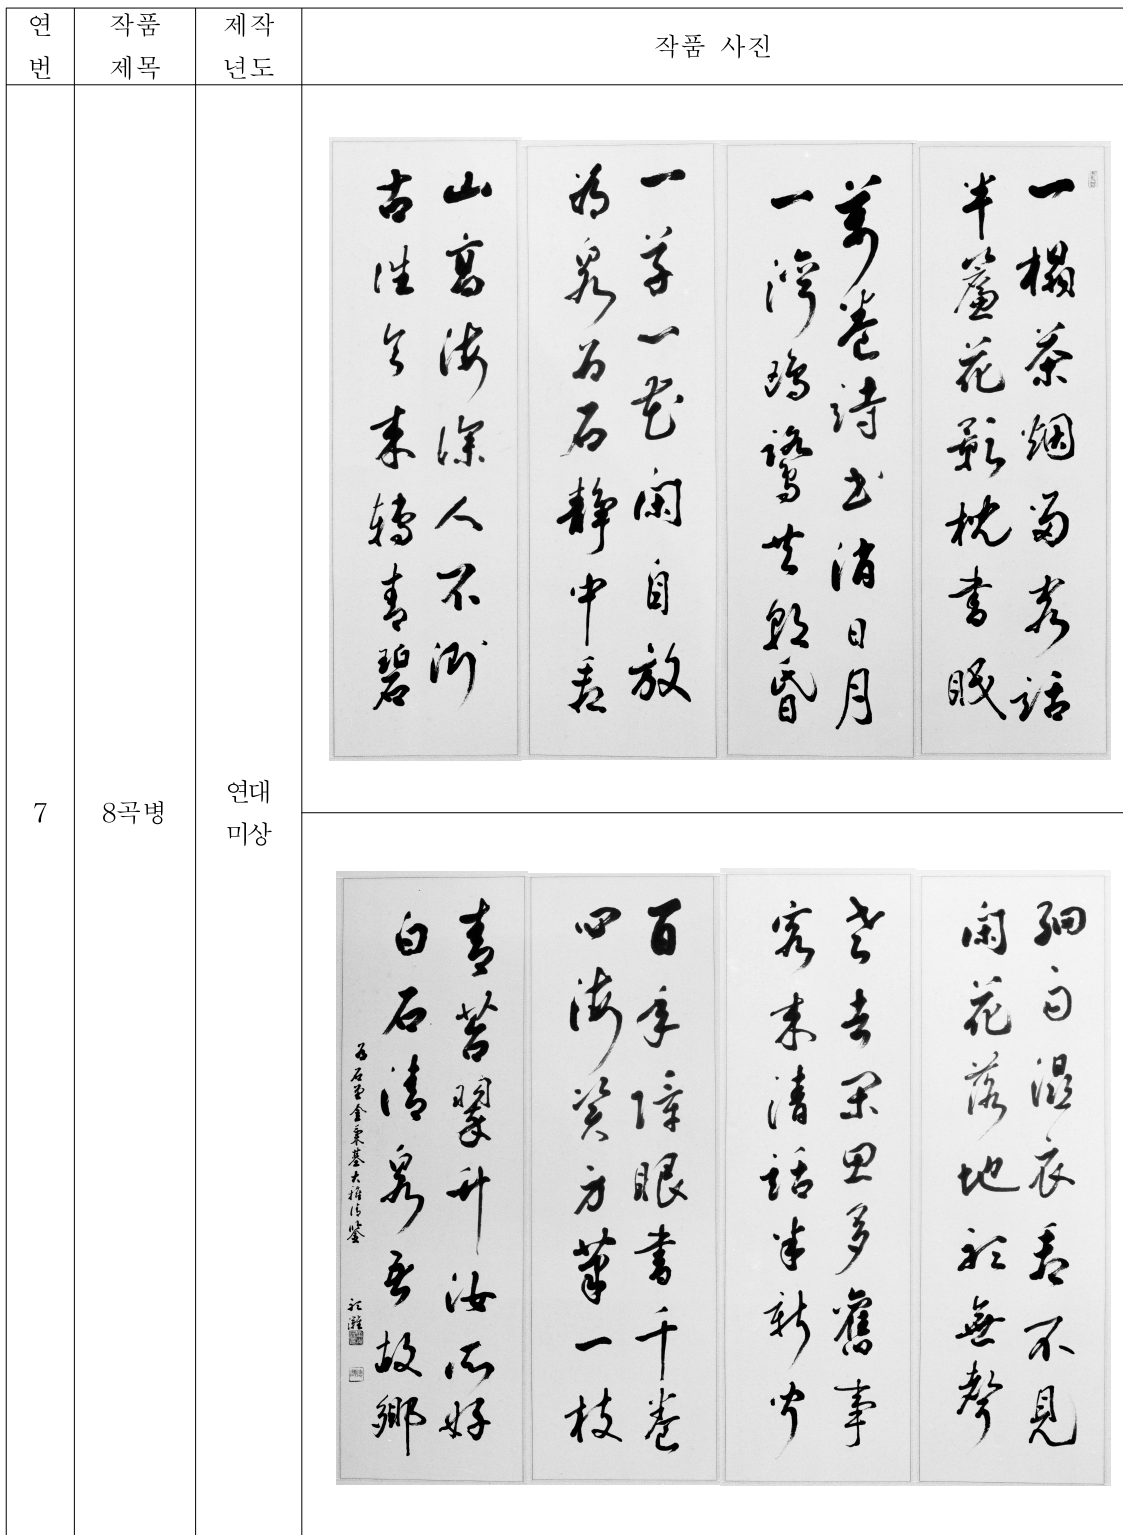 연번
작품 제목
제작 년도
작품 사진
7
8곡병
연대 미상
一榻茶烟留客話
半簾花影枕書眠
萬卷詩書消日月
一灣鷗鷺共朝昏
一草一花閑自放
為泉為石靜中看
山高海深人不測
古往今來轉青碧
細雨濕衣看不見
閑花落地聽無聲
老去閑思多舊事
客來清話半新聞
百年障眼書千卷
四海資身筆一枝
青苔翠竹汝所好
白石清泉吾故鄉
為石堂金秉基大雅清鑒